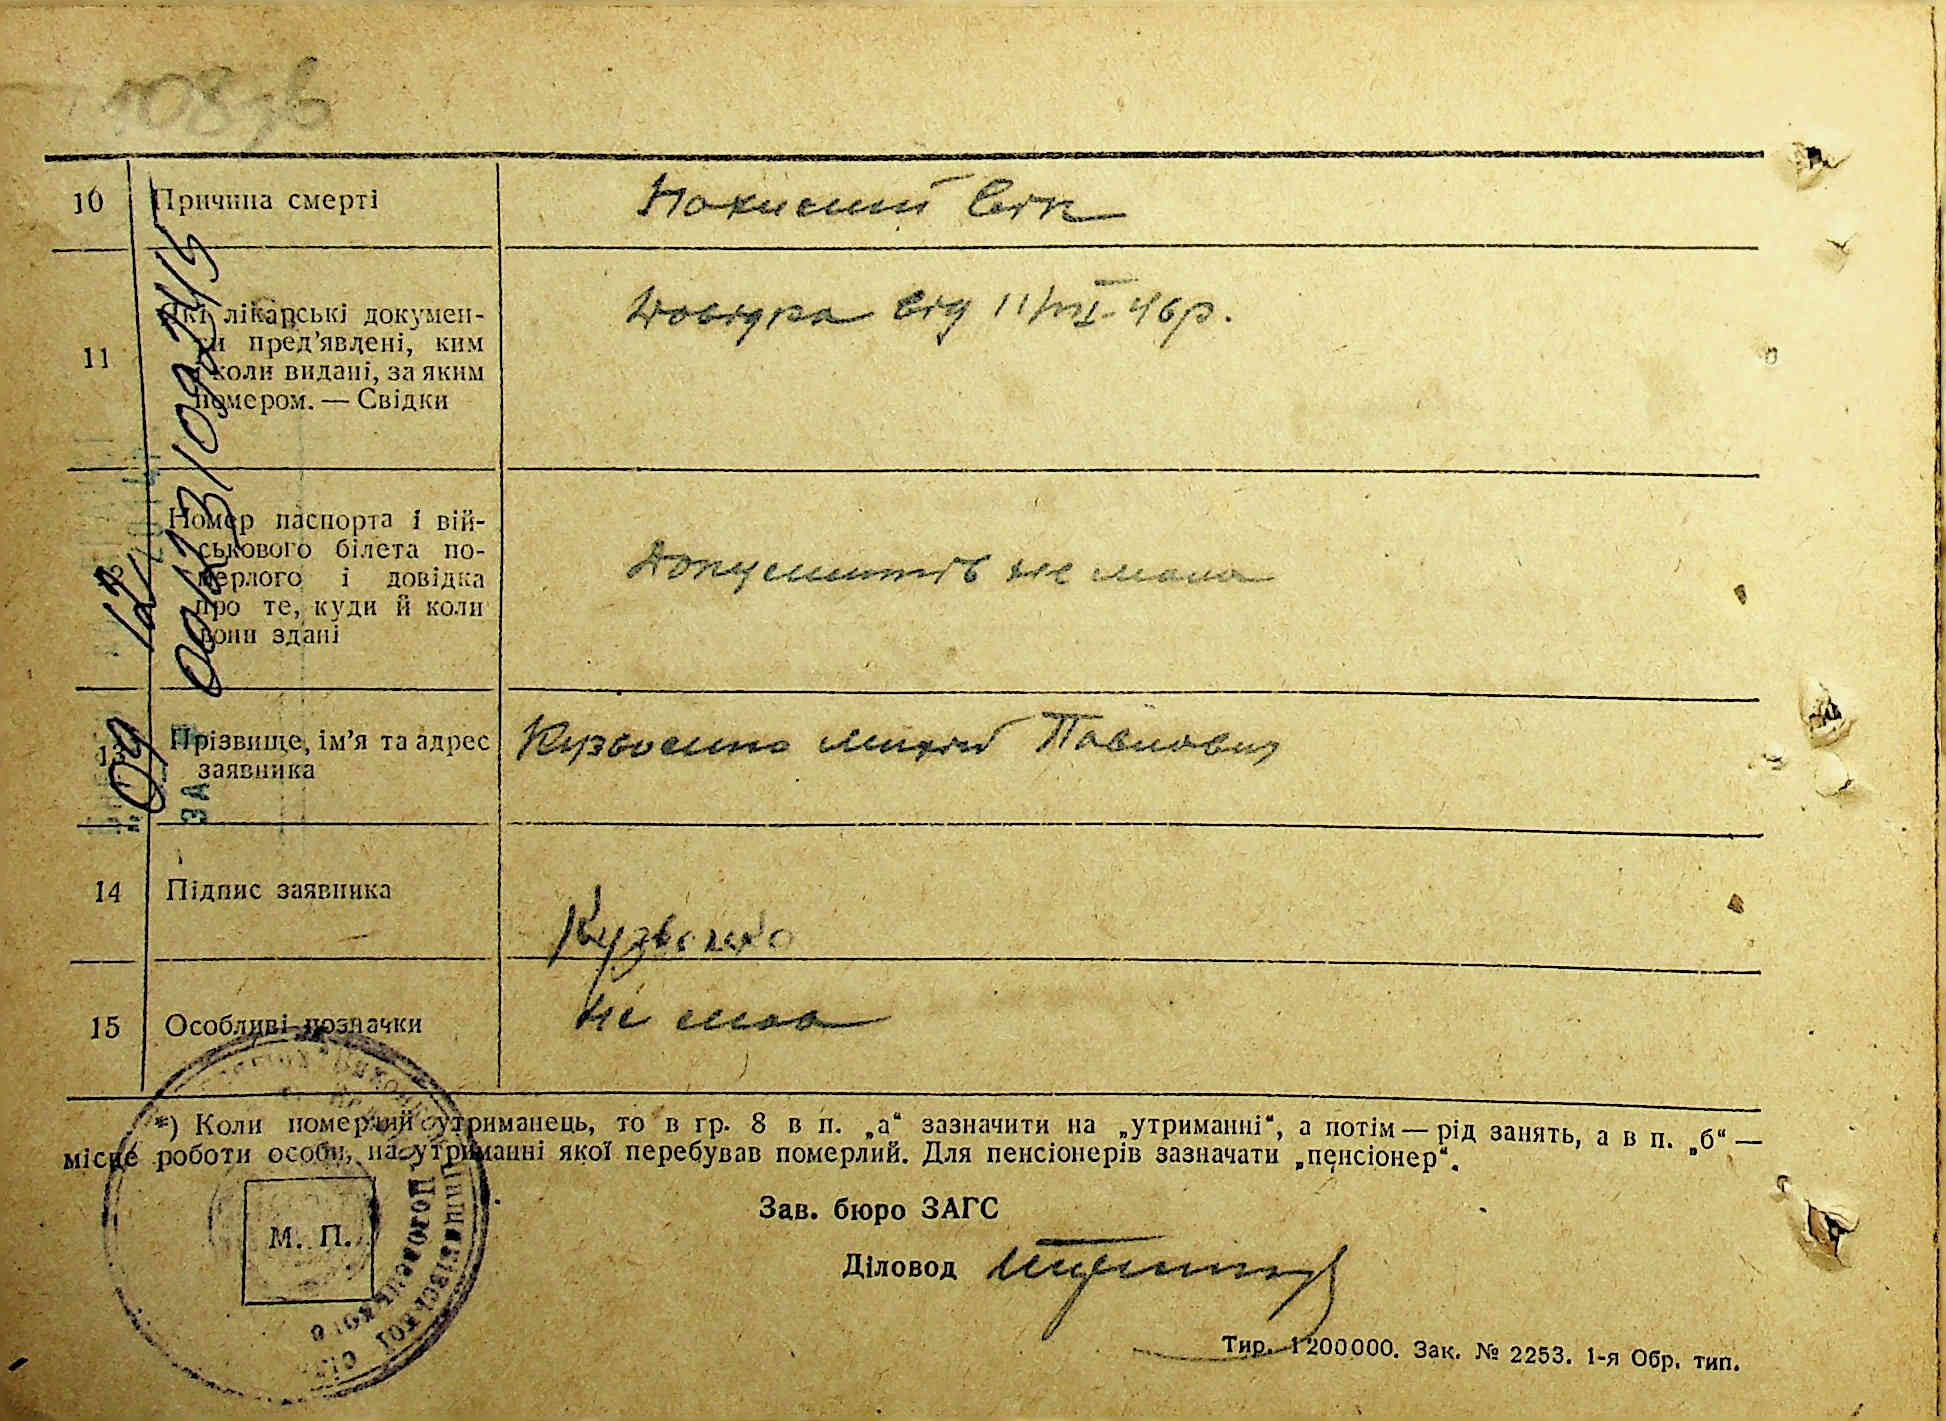 108зв
10 Причина смерті Похилий вік
11 Які лікарські докумен-
ти пред’явлені, ким
і коли видані, за яким
номером. — Свідки
Довідка від 11/VIII-46р.
Номер паспорта і вій-
ськового білета по-
мерлого і довідка
про те, куди й коли
вони здані
Документів не мала
13 Прізвище, ім’я та адрес
заявника
Павлович
14 Підпис заявника
15 Особливі позначки Не має
*) Коли померлий утриманець, то в гр. 8 в п. „а“ зазначити на „утриманні“, а потім — рід занять, а в п. „б“ —
місце роботи особи, на утриманні якої перебував померлий. Для пенсіонерів зазначати „пенсіонер“.
Зав. бюро ЗАГС
М. П.
Діловод
Тир. 1200000. Зак. № 2253. 1-я Обр. тип.
ЗА